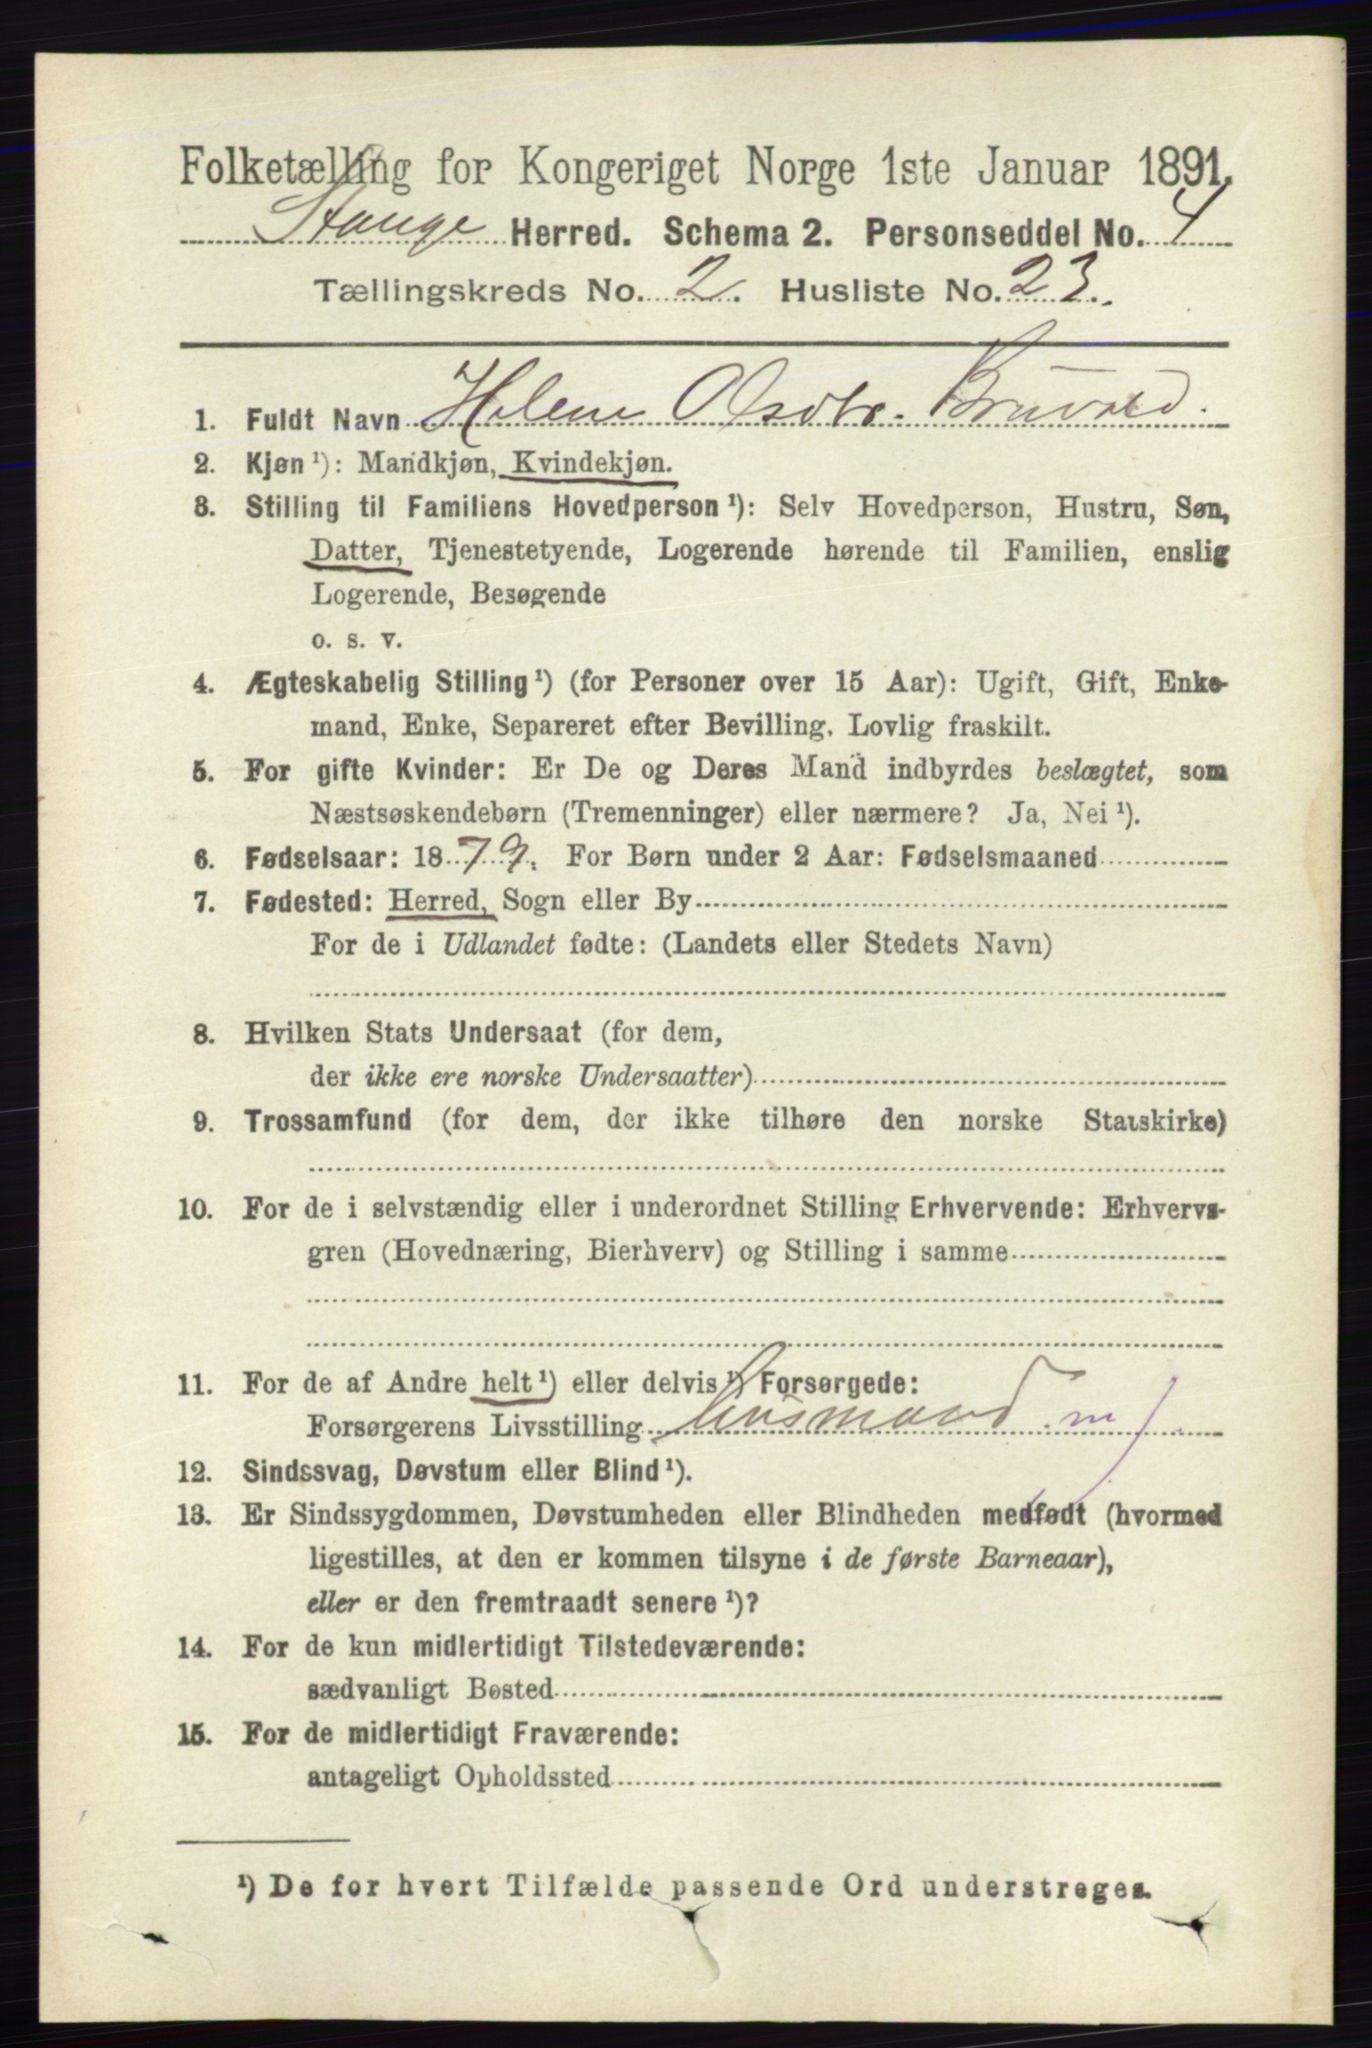 Folketælling for Kongeriget Norge 1ste Januar 1891.
Stange Herred. Schema 2. Personseddel No. 4
Tællingskreds No. 2. Husliste No. 23.
1. Fuldt Navn Helene Olsdtr. Bruvold.
2. Kjøn ¹): Mandkjøn, Kvindekjøn.
3. Stilling til Familiens Hovedperson ¹): Selv Hovedperson, Hustru, Søn,
Datter, Tjenestetyende, Logerende hørende til Familien, enslig
Logerende, Besøgende
o. s. v.
4. Ægteskabelig Stilling ¹) (for Personer over 15 Aar): Ugift, Gift, Enke-
mand, Enke, Separeret efter Bevilling. Lovlig fraskilt.
5. For gifte Kvinder: Er De og Deres Mand indbyrdes beslægtet, som
Næstsøskendebørn (Tremenninger) eller nærmere? Ja, Nei ¹).
6. Fødselsaar: 1879. For Børn under 2 Aar: Fødselsmaaned
7. Fødested: Herred, Sogn eller By
For de i Udlandet fødte: (Landets eller Stedets Navn)
8. Hvilken Stats Undersaat (for dem,
der ikke ere norske Undersaatter)
9. Trossamfund (for dem, der ikke tilhøre den norske Statskirke)
10. For de i selvstændig eller i underordnet Stilling Erhvervende: Erhvervs-
gren (Hovednæring, Bierhverv) og Stilling i samme
11. For de af Andre helt ¹) eller delvis ¹) Forsørgede:
Forsørgerens Livsstilling Husmand. m /.
12. Sindssvag, Døvstum eller Blind ¹).
13. Er Sindssygdommen, Døvstumheden eller Blindheden medfødt (hvormed
ligestilles, at den er kommen tilsyne i de første Barneaar),
eller er den fremtraadt senere ¹)?
14. For de kun midlertidigt Tilstedeværende:
sædvanligt Bosted
15. For de midlertidigt Fraværende:
antageligt Opholdssted
¹) De for hvert Tilfælde passende Ord understreges.